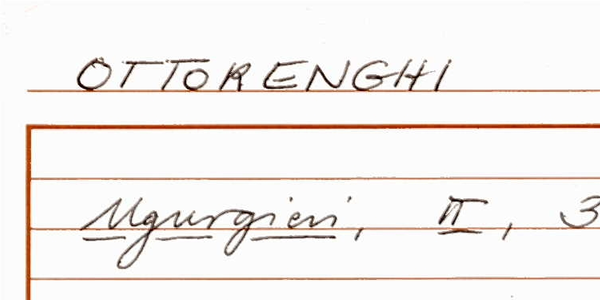 OTTORENGHI
Ugurgieri, II, 3